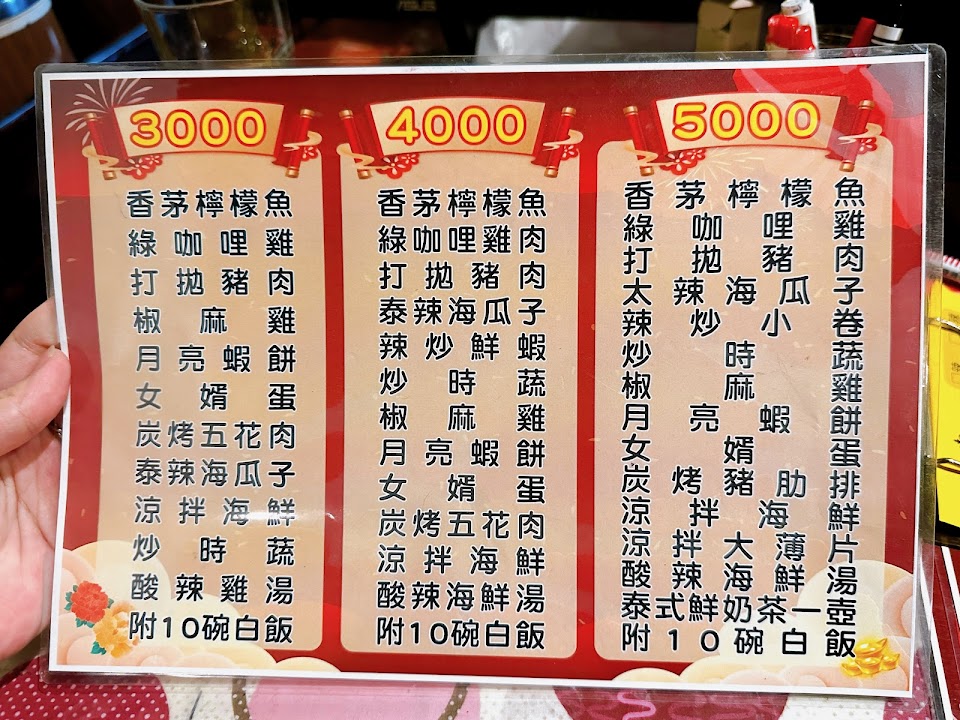 3000
香茅檸檬魚
綠咖哩雞
打拋豬肉
椒麻雞
月亮蝦餅
女婿蛋
炭烤五花肉
泰辣海瓜子
涼拌海鮮
炒時蔬
酸辣雞湯
附10碗白飯
4000
香茅檸檬魚
綠咖哩雞肉
打拋豬肉
泰辣海瓜子
辣炒鮮蝦
炒時蔬
椒麻雞
月亮蝦餅
女婿蛋
炭烤五花肉
涼拌海鮮
酸辣海鮮湯
附10碗白飯
5000
香茅檸檬魚
綠咖哩雞
打拋豬肉
太辣海瓜子
辣炒小卷
炒時蔬
椒麻雞
月亮蝦餅
女婿蛋
炭烤豬肋排
涼拌海鮮
涼拌大薄片
酸辣海鮮湯
泰式鮮奶茶一壺
附10碗白飯